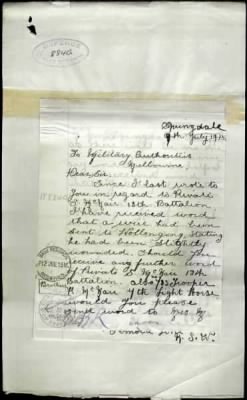 8840
Springdale
9th July 1915
To Military Authorities
Melbourne
Dear Sir
Since I last wrote to
you in regard to Private
McNair 13th Battalion
I have received word
that a wire had been
sent to Wollongong stating
he had been slightly
wounded. Should you
receive any further word
of Private S McNair 13th
Battalion. also Trooper
R. McNair 7th Light Horse
would you please
send word to
Temora
N. S. W.